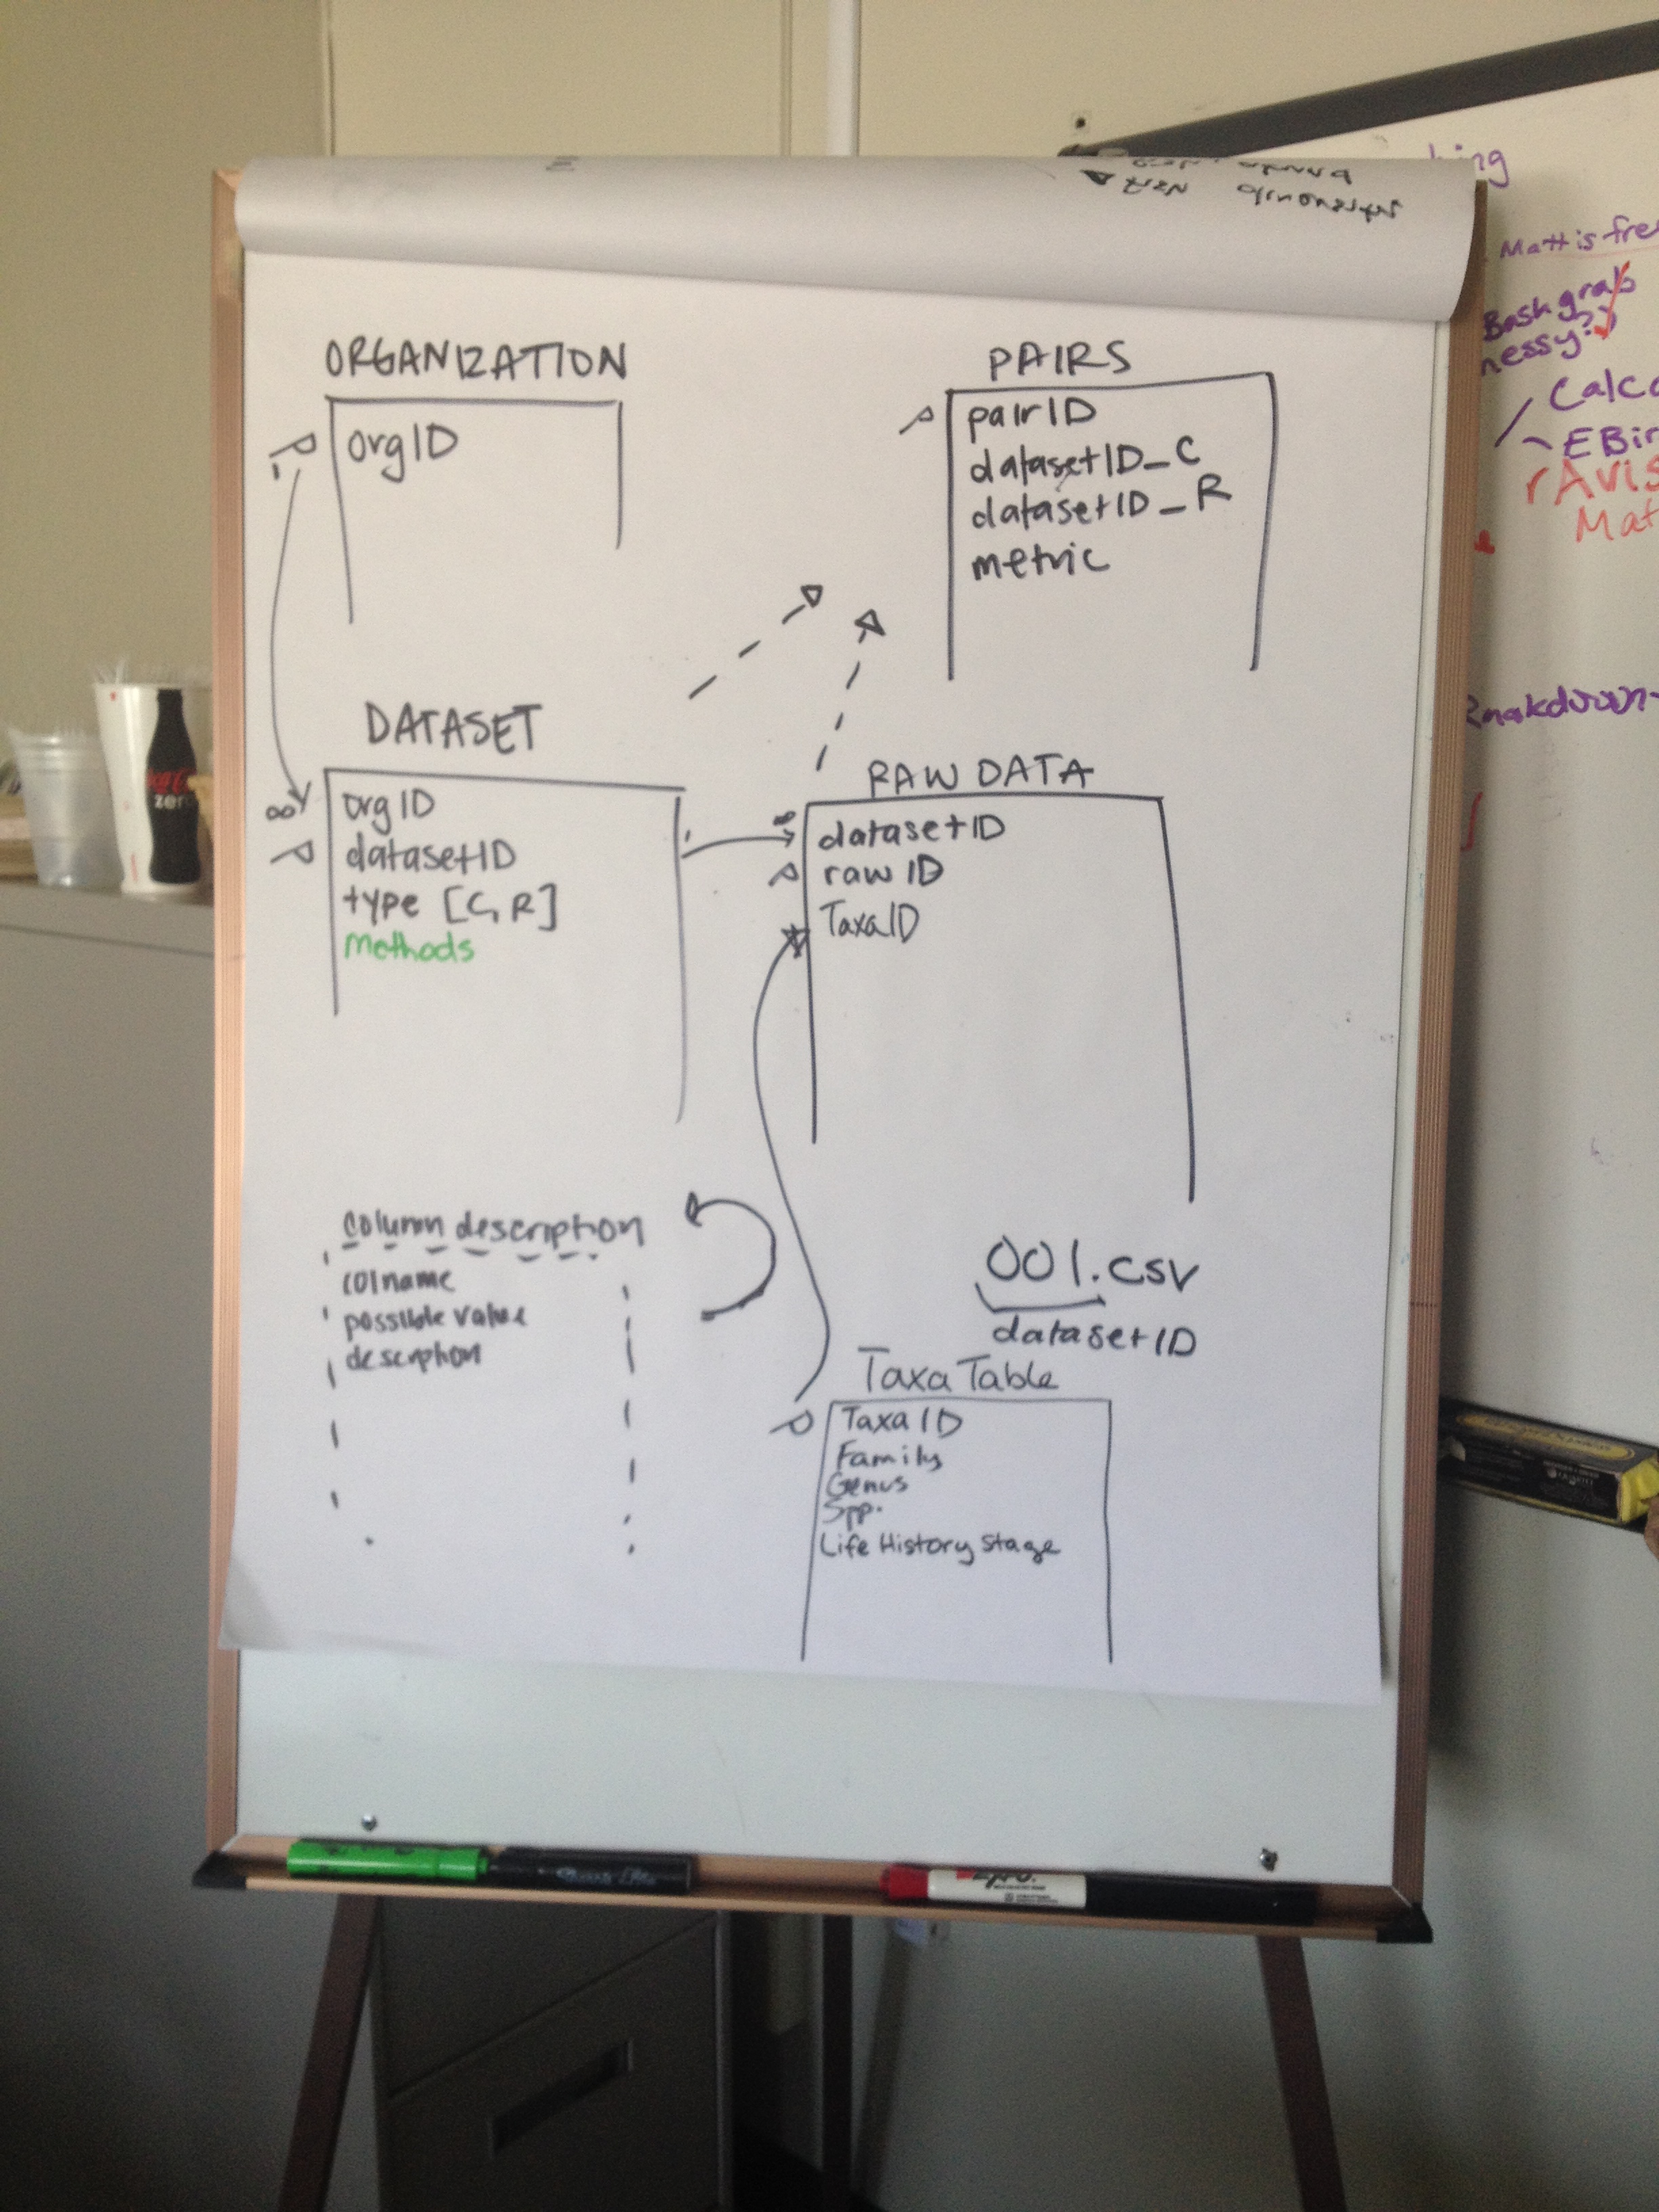 ORGANIZATION
P orgID
1
PAIRS
P pairID
datasetID_C
datasetID_R
metric
DATASET
∞ orgID
P datasetID
type [C, R]
Methods
1
RAW DATA
∞ datasetID
P rawID
TaxaID
column description
colname
possible value
description
001.csv
datasetID
Taxa Table
P TaxaID
Family
Genus
Spp.
Life History Stage
Matt is
Bash
EBir
rAvis
zero